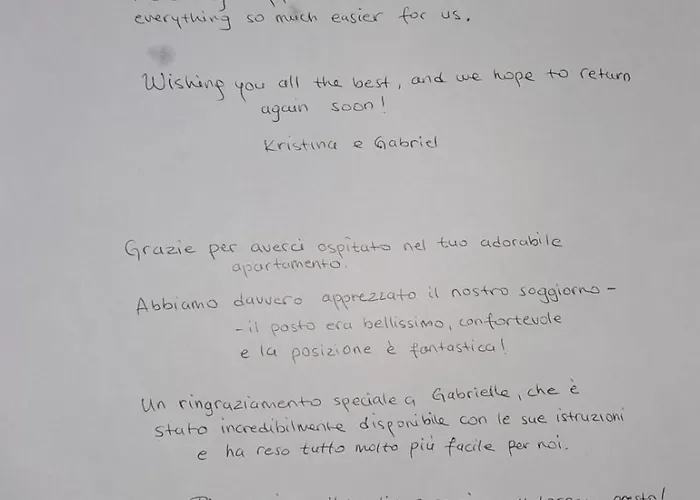 everything so much easier for us.
Wishing you all the best, and we hope to return
again soon!
Kristina e Gabriel
Grazie per averci ospitato nel tuo adorabile
apartamento.
Abbiamo davvero apprezzato il nostro soggiorno -
- il posto era bellissimo, confortevole
e la posizione è fantastica!
Un ringraziamento speciale a Gabrielle, che è
stato incredibilmente disponibile con le sue istruzioni
e ha reso tutto molto più facile per noi.
presto!